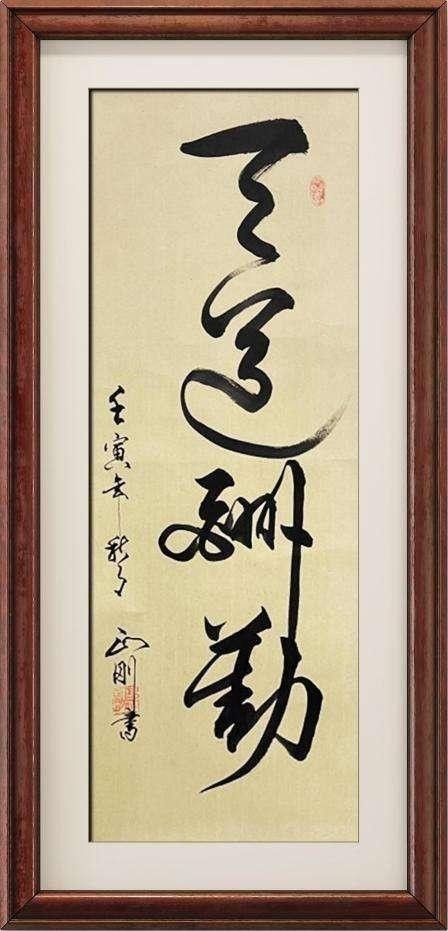 天道酬勤
壬寅年秋月 正刚書